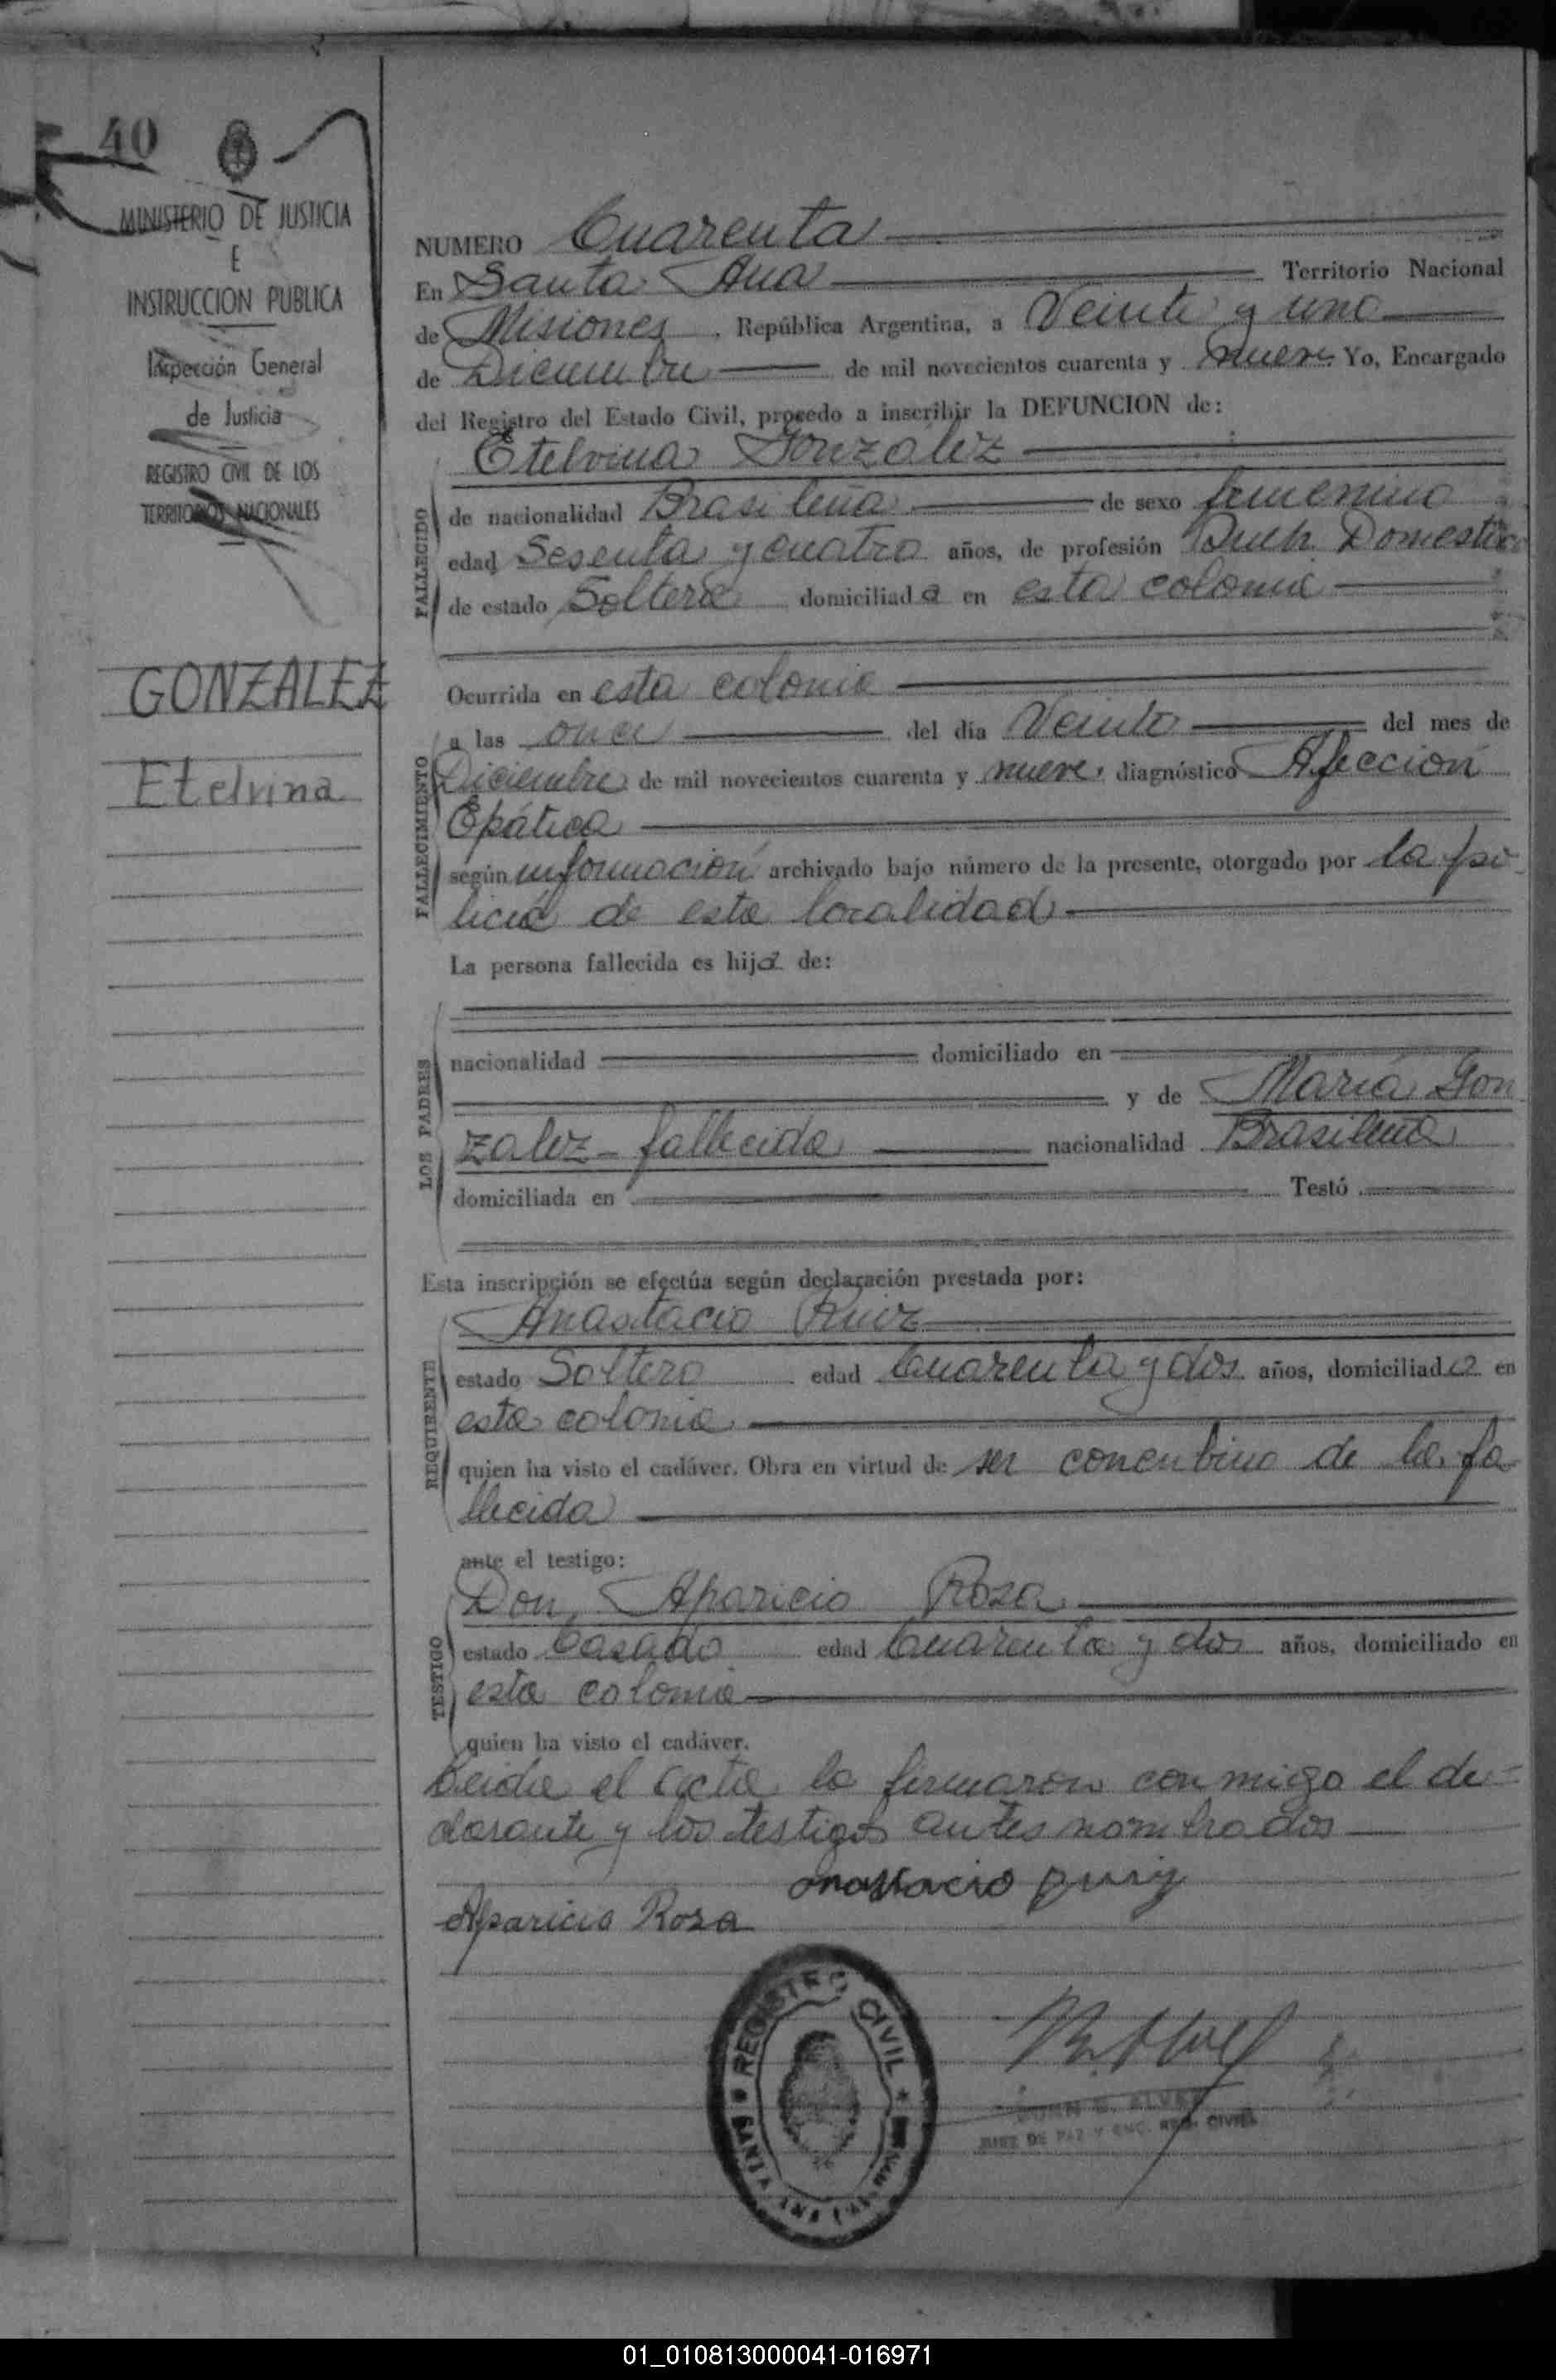 40
MINISTERIO DE JUSTICIA
E
INSTRUCCION PUBLICA
Inspección General
de Justicia
REGISTRO CIVIL DE LOS
TERRITORIOS NACIONALES
GONZALEZ
Etelvina
NUMERO Cuarenta
En Santa Ana Territorio Nacional
de Misiones, República Argentina, a Veinte y uno
de Diciembre de mil novecientos cuarenta y nueve Yo, Encargado
del Registro del Estado Civil, procedo a inscribir la DEFUNCION de:
Etelvina Gonzalez
FALLECIDO
de nacionalidad Brasileña de sexo femenino
edad Sesenta y cuatro años, de profesión Domestica
de estado Soltera domiciliada en esta colonia
FALLECIMIENTO
Ocurrida en esta colonia
a las once del día Veinte del mes de
Diciembre de mil novecientos cuarenta y nueve, diagnóstico Afección
Epática
según información archivado bajo número de la presente, otorgado por la po
licia de esta localidad
La persona fallecida es hija de:
LOS PADRES
nacionalidad domiciliado en
y de María Gon
zalez - fallecida nacionalidad Brasileña
domiciliada en Testó
Esta inscripción se efectúa según declaración prestada por:
REQUIRENTE
Anastacio Ruiz
estado Soltero edad Cuarenta y dos años, domiciliado en
esta colonia
quien ha visto el cadáver. Obra en virtud de ser concubino de la fa
llecida
ante el testigo:
TESTIGO
Don, Aparicio Roza
estado Casado edad Cuarenta y dos años, domiciliado en
esta colonia
quien ha visto el cadáver.
Leida el acta la firmaron conmigo el de=
clarante y los testigos antes nombrados
Aparicio Roza
REGISTRO CIVIL
JUEZ DE PAZ Y ENC. REG. CIVIL
01_010813000041-016971